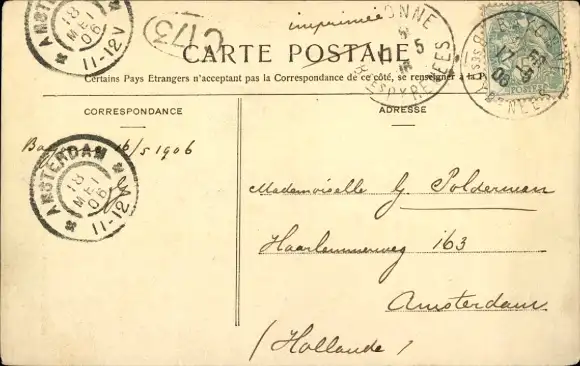 AMSTERDAM
18 MEI 06
11-12V
C173
imprimée
CARTE POSTALE
Certains Pays Etrangers n'acceptant pas la Correspondance de ce côté, se renseigner à la
CORRESPONDANCE
ADRESSE
16/5 1906
AMSTERDAM
18 MEI 06
11-12V
Mademoiselle G. Polderman
Haarlemmerweg 163
Amsterdam
(Hollande)